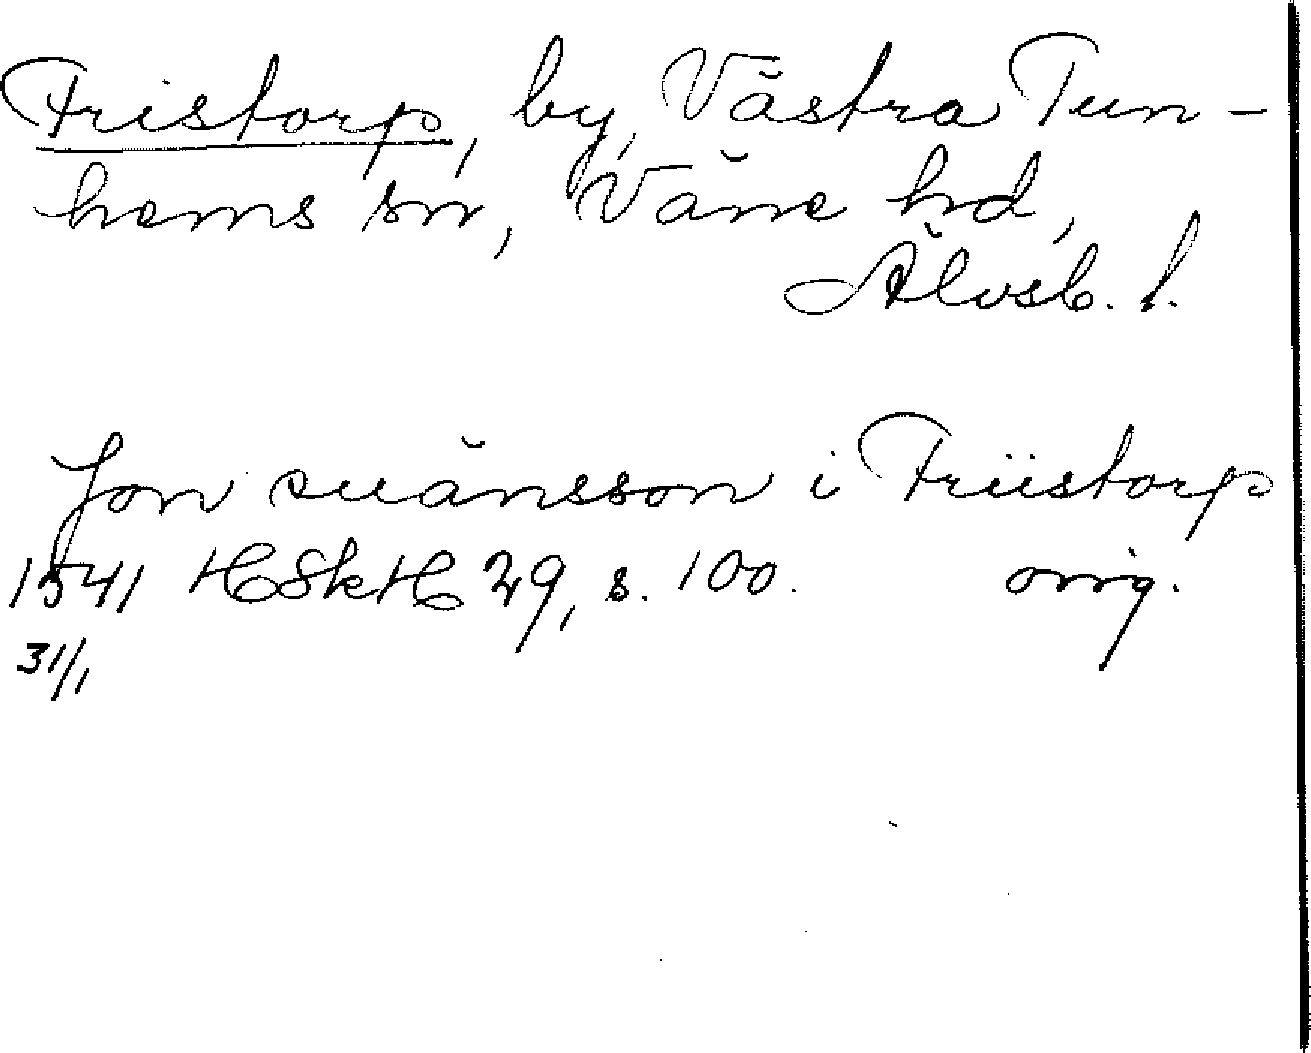 Fristorp, by, Västra Tun-
hems sn, Väne hd,
Älvsb. l.
Jon suänsson i Friistorp
1541 HSkH 29, s. 100. orig.
31/1